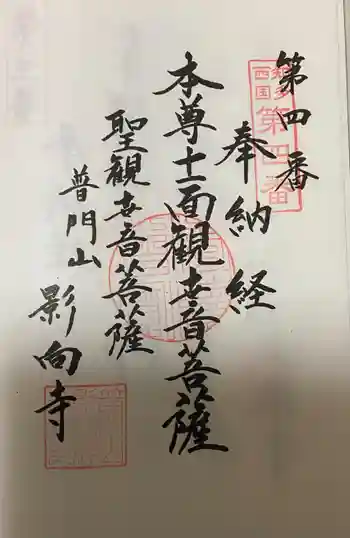 知多
西国
第四番
第四番
奉納経
本尊十一面観世音菩薩
聖観世音菩薩
普門山
影向寺